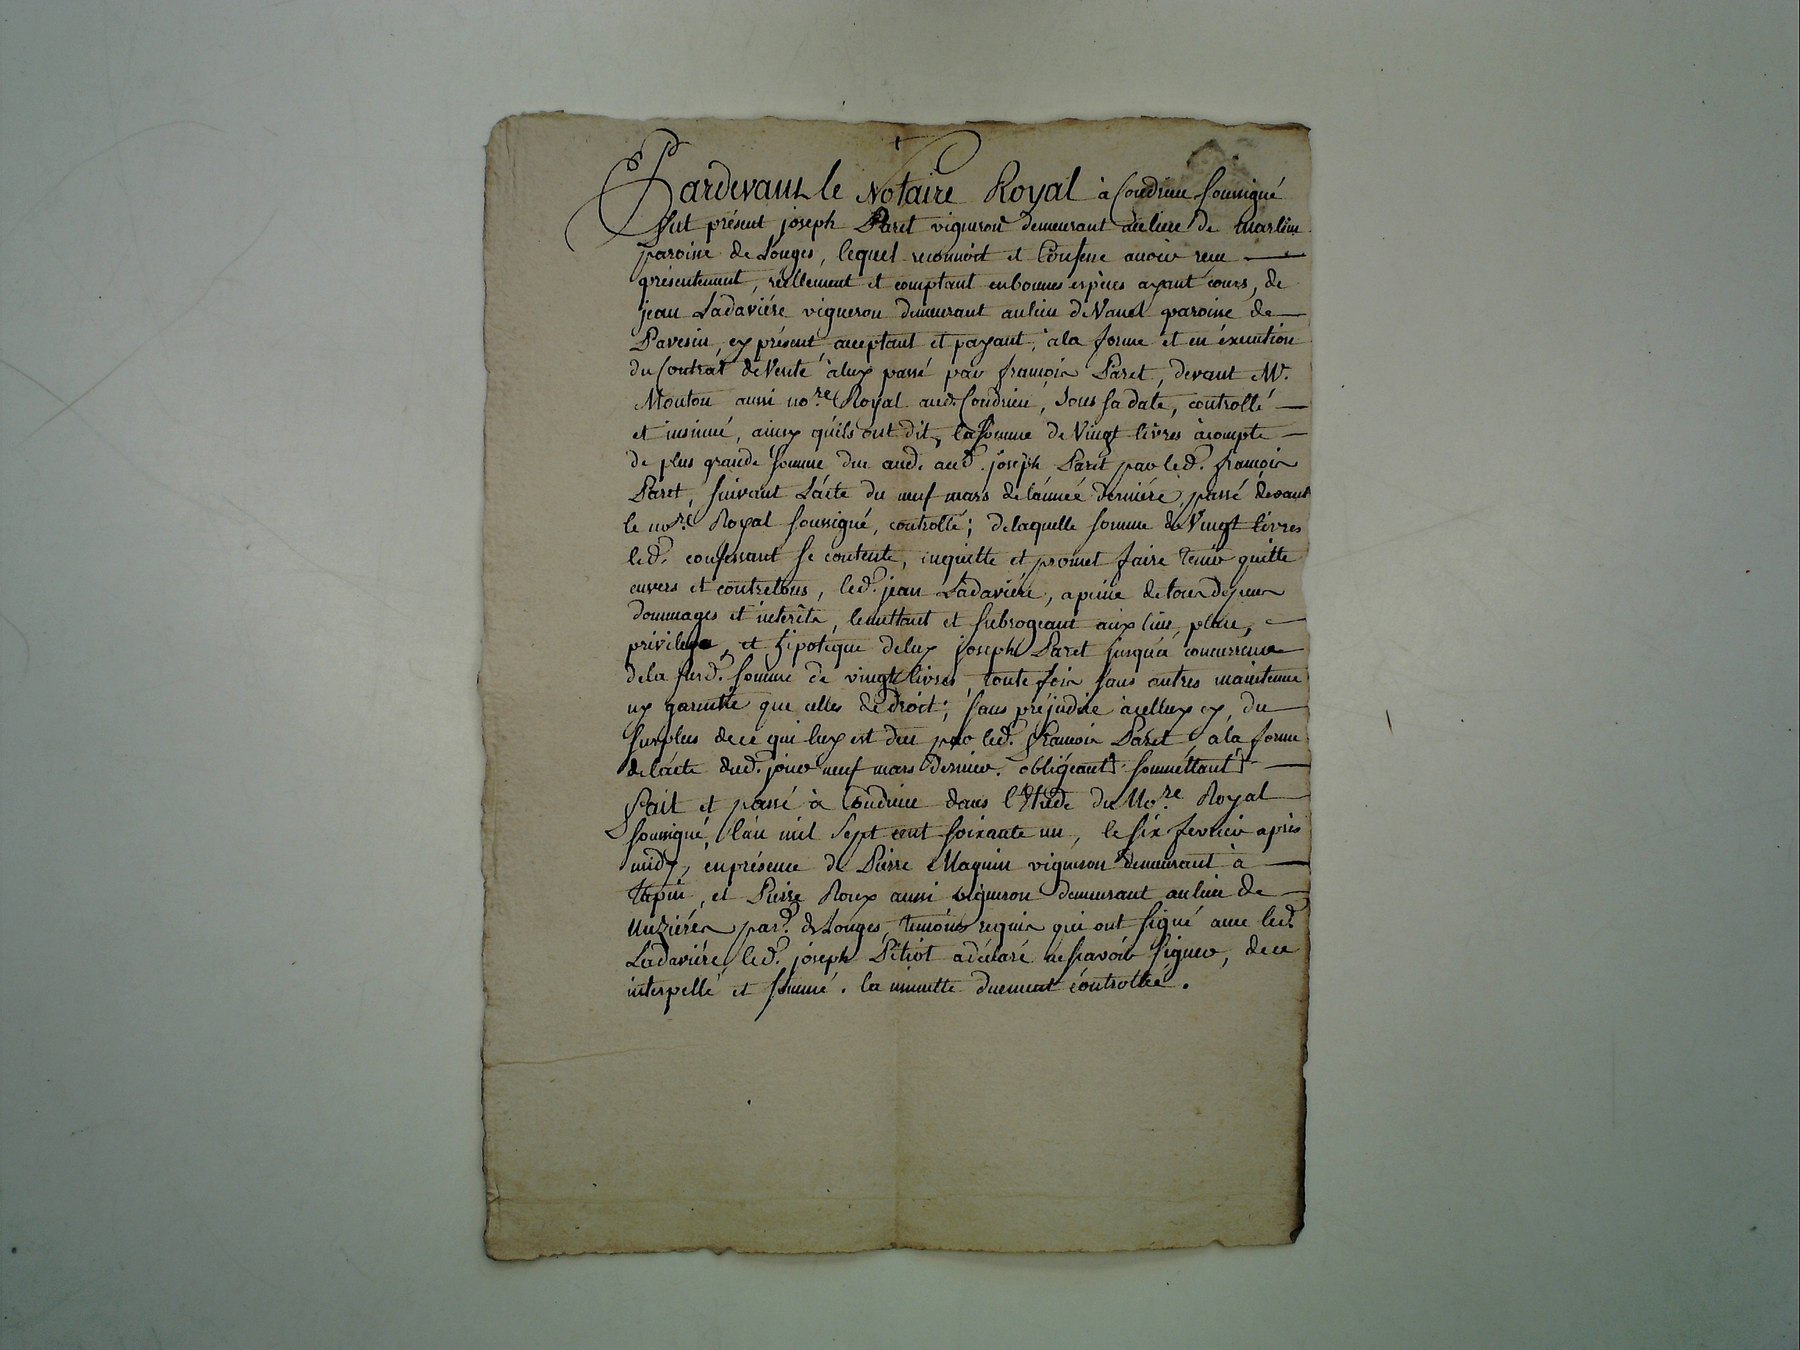 Pardevant le Notaire Royal à Condrieu soussigné
fut présent joseph Paret vigneron demeurant au lieu de Marlin
paroisse de Longes, lequel reconnoit et confesse avoir reçu
présentement, réellement et comptant en bonnes espèces ayant cours, de
jean Ladavière vigneron demeurant au lieu de Nanol paroisse de
Pavesin, cy présent, acceptant et payant, à la forme et en éxecution
du Contrat de Vente à luy passé par françois Paret, devant Me.
Mouton aussi nore. Royal aud. Condrieu, sous sa date, controllé
et insinué, ainsy qu'ils ont dit, la somme de Vingt livres àcompte
de plus grande somme due aud. joseph Paret par led. françois
Paret, suivant L'acte du neuf mars de l'année dernière, passé devant
le nore. Royal soussigné, controllé; de laquelle somme de Vingt livres
led. confessant se contente, en quitte et promet faire tenir quitte
envers et contre tous, led. jean Ladavière, a peine de tous dépens
dommages et intérêts, le mettant et subrogeant aux lieu, place,
privilege, et hipotèque de luy joseph Paret jusqu'à concurrence
de la susd. somme de vingt livres, toute fois sans autres maintenue
ny garentie que celles de droit; sans préjudice à celluy cy, du
surplus de ce qui luy est deu par led. françois Paret, à la forme
de l'acte dud. jour neuf mars dernier. obligeant soumettant
fait et passé à Condrieu dans l'Etude du Nore. Royal
soussigné, l'an mil sept cent soixante un, le six fevrier après
midy, en présence de Pierre Maquin vigneron demeurant à
Tupin, et Pierre Roux aussi vigneron demeurant au lieu de
par. de Longes, temoins requis qui ont signé avec led.
Ladavière, led. joseph Petiot a déclaré ne scavoir signer, de ce
interpellé et sommé. la minutte duement controllée.